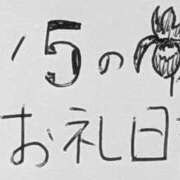 5の
お礼日